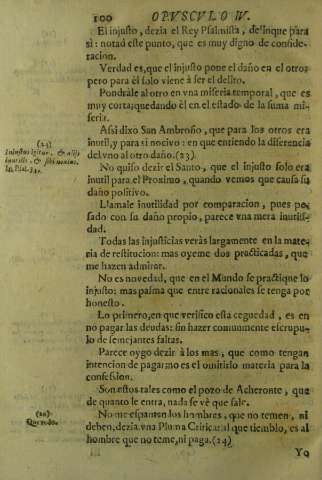 100 OPVSCVLO IV.
El injusto, dezia el Rey Psalmista, delinque para
si: notad este punto, que es muy digno de conside-
racion.
Verdad es, que el injusto pone el daño en el otro;
pero para él solo viene à ser el delito.
Pondràle al otro en vna miseria temporal, que es
muy corta; quedando èl en el estado de la suma mi-
seria.
Assi dixo San Ambrosio, que para los otros era
inutil, y para si nocivo: en que entiendo la diferencia
del vno al otro daño. (23)
(23)
Injustus igitur, & alijs
inutilis, & sibi noxius.
in Psal.
No quiso dezir el Santo, que el injusto solo era
inutil para el Proximo, quando vemos que causa su
daño positivo.
Llamale inutilidad por comparacion, pues pe-
sado con su daño propio, parece vna mera inutili-
dad.
Todas las injusticias veràs largamente en la mate-
ria de restitucion: mas oyeme dos practicadas, que
me hazen admirar.
No es novedad, que en el Mundo se practique lo
injusto: mas pasma que entre racionales se tenga por
honesto.
Lo primero, en que verifico esta ceguedad, es en
no pagar las deudas: sin hazer comunmente escrupu-
lo de semejantes faltas.
Parece oygo dezir à los mas, que como tengan
intencion de pagar no es el omitirlo materia para la
confession.
Son estos tales como el pozo de Acheronte, que
de quanto le entra, nada se vè que sale.
No me espantan los hombres, que no temen, ni
deben, dezia vna Pluma Critica: al que tiemblo, es al
hombre que no teme, ni paga. (24)
Quevedo.
Yo